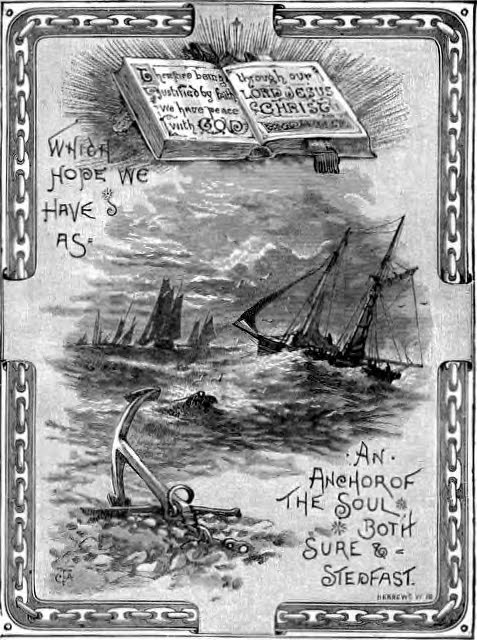 Therefore being
justified by faith
we have peace
with GOD
through our
LORD JESUS
CHRIST
WHICH
HOPE WE
HAVE
AS
AN
ANCHOR OF
THE SOUL
BOTH
SURE &
STEDFAST.
HEBREWS